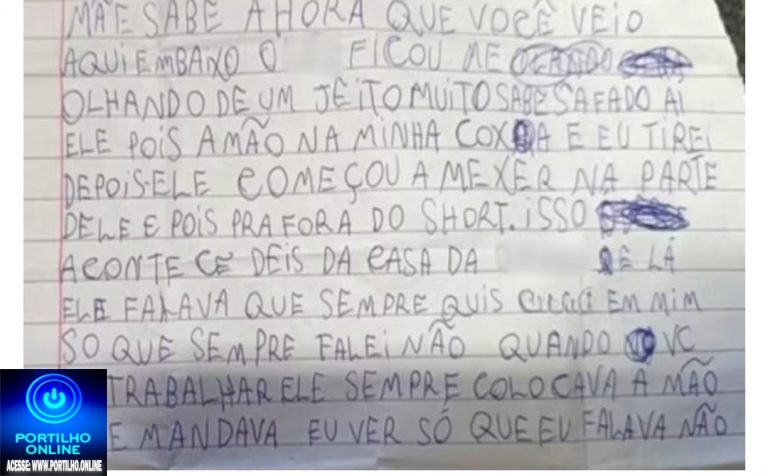 MÃE SABE AHORA QUE VOCÊ VEIO
AQUI EMBAXO O FICOU ME
OLHANDO DE UM JEITO MUITO SABE SAFADO AI
ELE POIS A MÃO NA MINHA COXA E EU TIREI
DEPOIS ELE COMEÇOU A MEXER NA PARTE
DELE E POIS PRA FORA DO SHORT. ISSO
ACONTECE DEIS DA CASA DA E LÁ
ELE FALAVA QUE SEMPRE QUIS EM MIM
SO QUE SEMPRE FALEI NÃO QUANDO VC
TRABALHAR ELE SEMPRE COLOCAVA A MÃO
E MANDAVA EU VER SÓ QUE EU FALAVA NÃO
PORTILHO
ONLINE
ACESSE: WWW.PORTILHO.ONLINE